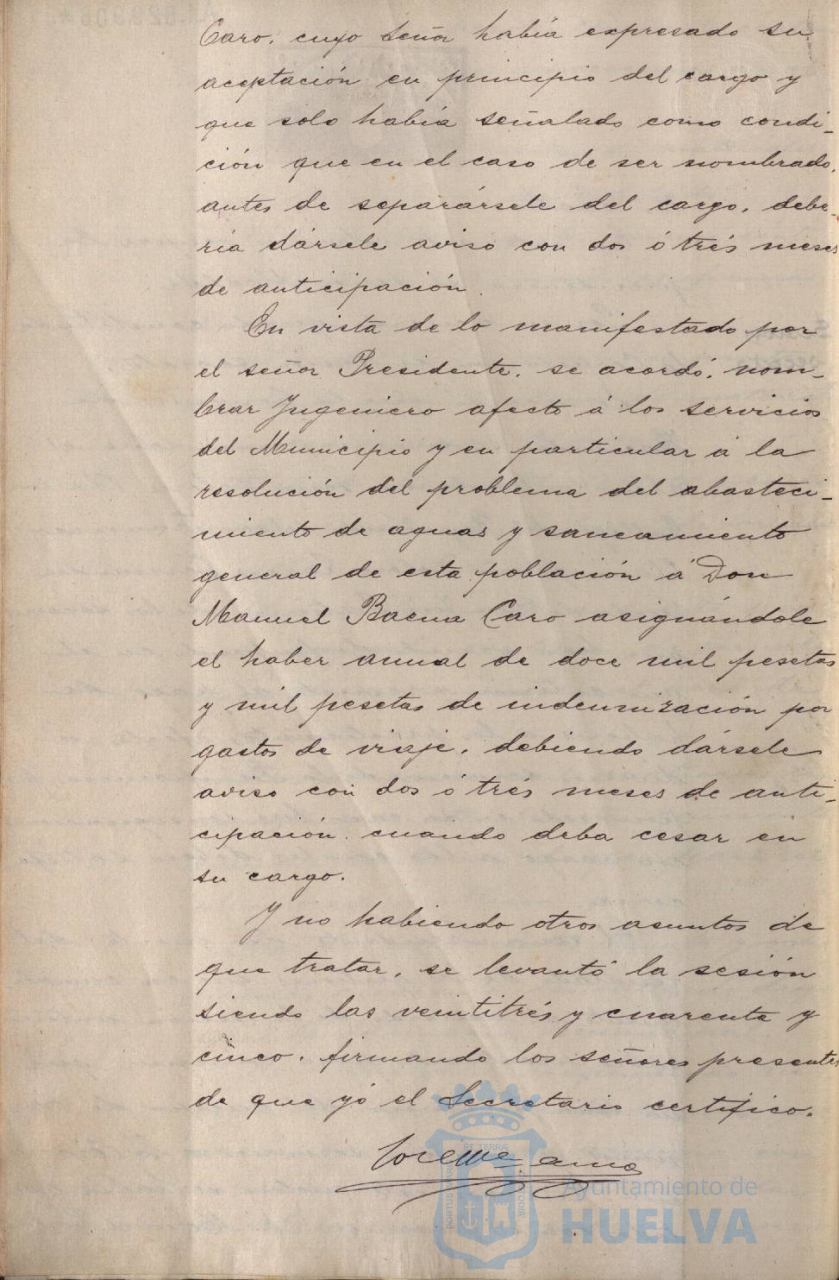 Caro, cuyo señor había expresado su
aceptación en principio del cargo y
que solo había señalado como condi-
ción que en el caso de ser nombrado,
antes de separársele del cargo, debe-
ría dársele aviso con dos ó trés meses
de anticipación.
En vista de lo manifestado por
el señor Presidente, se acordó, nom-
brar Ingeniero afecto á los servicios
del Municipio y en particular á la
resolución del problema del abasteci-
miento de aguas y saneamiento
general de esta población á Don
Manuel Baena Caro asignándole
el haber anual de doce mil pesetas
y mil pesetas de indemnización por
gastos de viaje, debiendo dársele
aviso con dos ó trés meses de anti-
cipación cuando deba cesar en
su cargo.
Y no habiendo otros asuntos de
que tratar, se levantó la sesión
siendo las veintitrés y cuarenta y
cinco, firmando los señores presentes
de que yó el Secretario certifico.
Ayuntamiento de
HUELVA